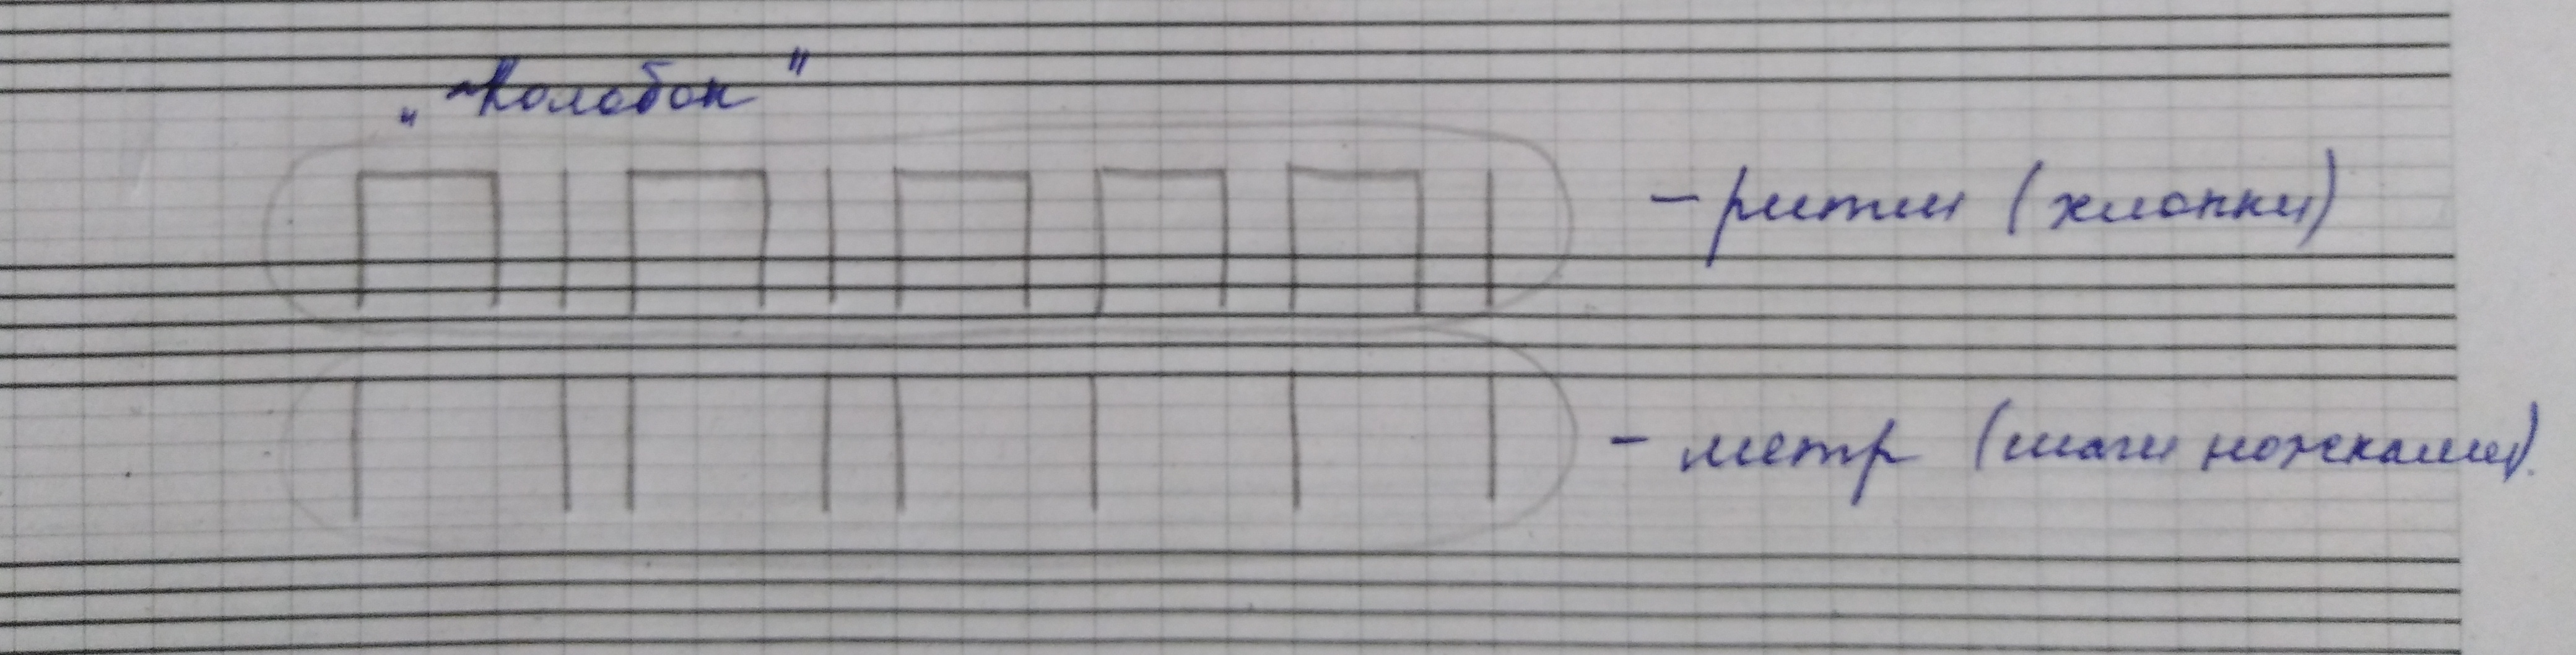 „Колобок"
- ритм (хлопки)
- метр (шаги ножками).